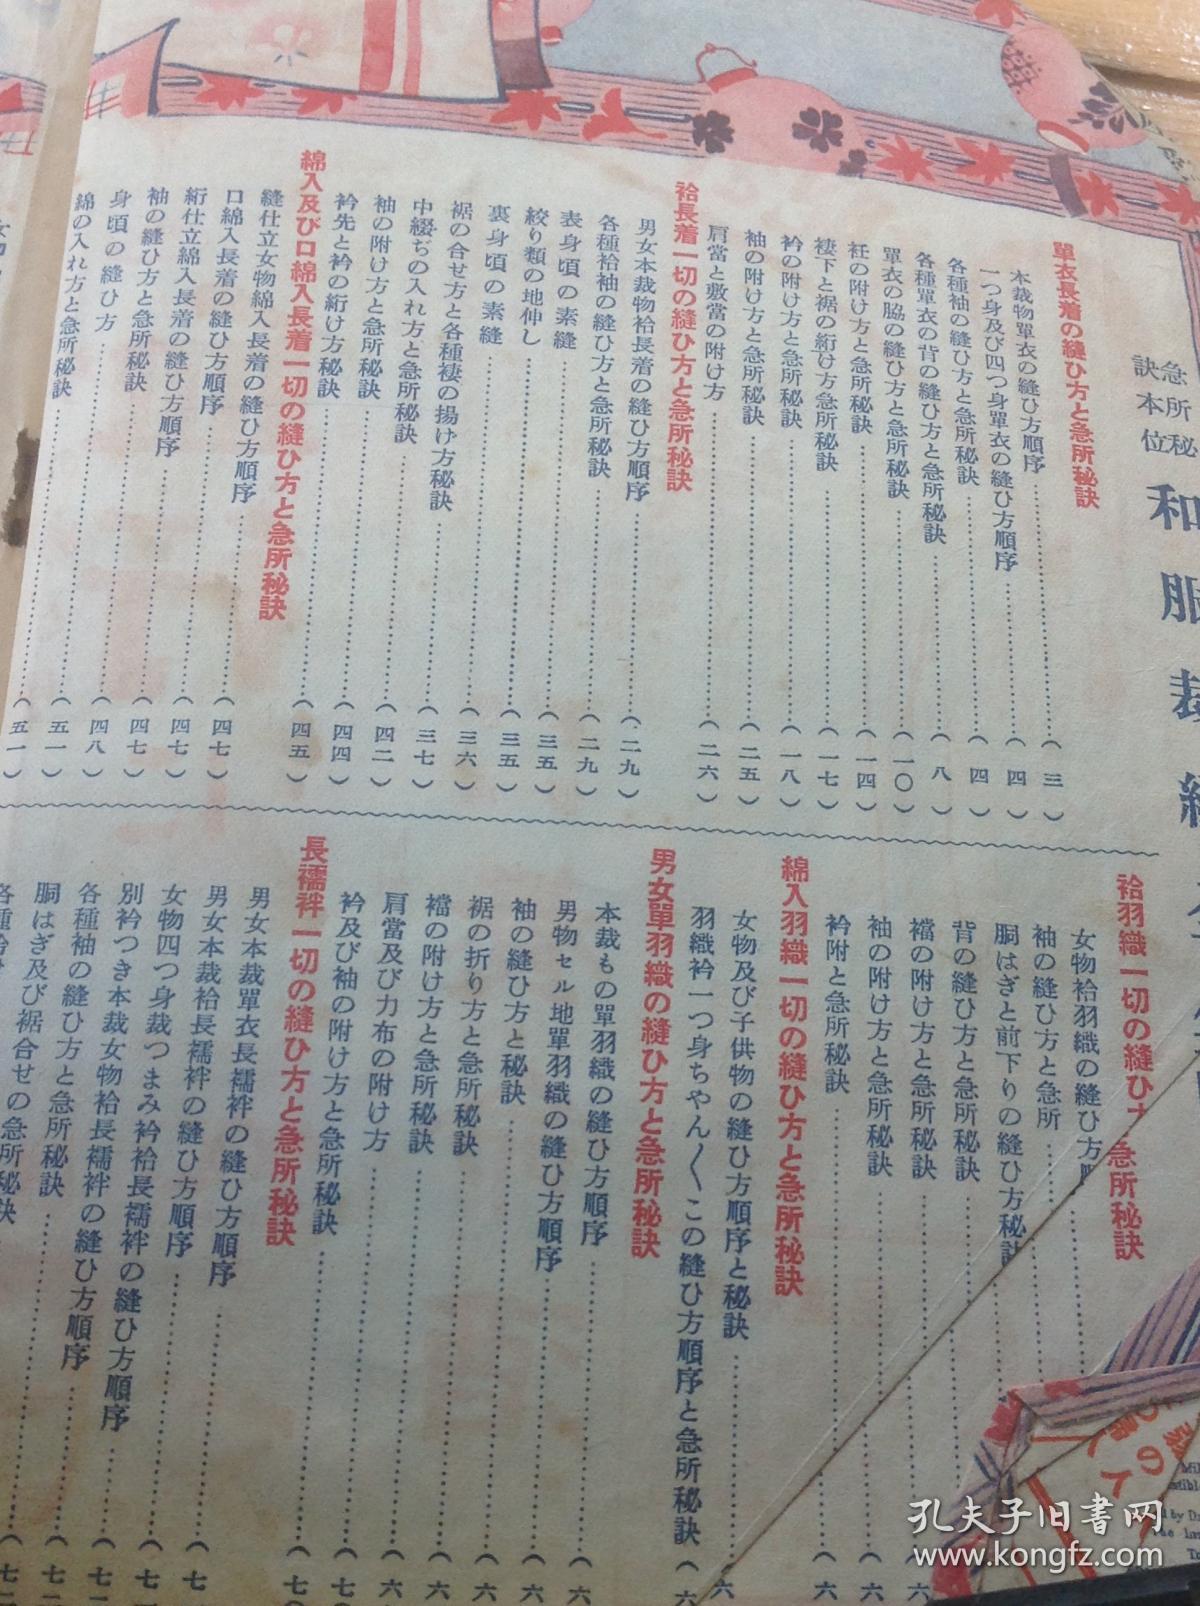 急所秘
訣本位
和服裁縫
單衣長着の縫ひ方と急所秘訣
本裁物單衣の縫ひ方順序……(三)
一つ身及び四つ身單衣の縫ひ方順序……(四)
各種袖の縫ひ方と急所秘訣……(四)
各種單衣の背の縫ひ方と急所秘訣……(八)
單衣の脇の縫ひ方と急所秘訣……(一〇)
衽の附け方と急所秘訣……(一四)
褄下と裾の絎け方急所秘訣……(一七)
衿の附け方と急所秘訣……(一八)
袖の附け方と急所秘訣……(二五)
肩當と敷當の附け方……(二六)
袷長着一切の縫ひ方と急所秘訣
男女本裁物袷長着の縫ひ方順序……(二九)
各種袷袖の縫ひ方と急所秘訣……(二九)
表身頃の素縫……(三五)
絞り類の地伸し……(三五)
裏身頃の素縫……(三六)
裾の合せ方と各種褄の揚げ方秘訣……(三七)
中綴ぢの入れ方と急所秘訣……(四二)
袖の附け方と急所秘訣……(四四)
衿先と衿の絎け方秘訣……(四五)
綿入及び口綿入長着一切の縫ひ方と急所秘訣
縫仕立女物綿入長着の縫ひ方順序……(四七)
口綿入長着の縫ひ方順序……(四七)
絎仕立綿入長着の縫ひ方順序……(四七)
袖の縫ひ方と急所秘訣……(四八)
身頃の縫ひ方……(五一)
綿の入れ方と急所秘訣……(五一)
袷羽織一切の縫ひ方 急所秘訣
女物袷羽織の縫ひ方
袖の縫ひ方と急所
胴はぎと前下りの縫ひ方秘訣
背の縫ひ方と急所秘訣
襠の附け方と急所秘訣……(六
袖の附け方と急所秘訣……(六
衿附と急所秘訣……(六
綿入羽織一切の縫ひ方と急所秘訣
女物及び子供物の縫ひ方順序と秘訣……六
羽織衿一つ身ちやん〱この縫ひ方順序と急所秘訣(六
男女單羽織の縫ひ方と急所秘訣
本裁もの單羽織の縫ひ方順序……(六
男物セル地單羽織の縫ひ方順序……(六
袖の縫ひ方と秘訣……(六
裾の折り方と急所秘訣……(六
襠の附け方と急所秘訣……(六
肩當及び力布の附け方……(六
衿及び袖の附け方と急所秘訣……(七〇
長襦袢一切の縫ひ方と急所秘訣
男女本裁單衣長襦袢の縫ひ方順序……(七〇
男女本裁袷長襦袢の縫ひ方順序……(七
女物四つ身裁つまみ衿袷長襦袢の縫ひ方順序
別衿つき本裁女物袷長襦袢の縫ひ方順序
各種袖の縫ひ方と急所秘訣
胴はぎ及び裾合せの急所秘訣
孔夫子旧书网
www.kongfz.com